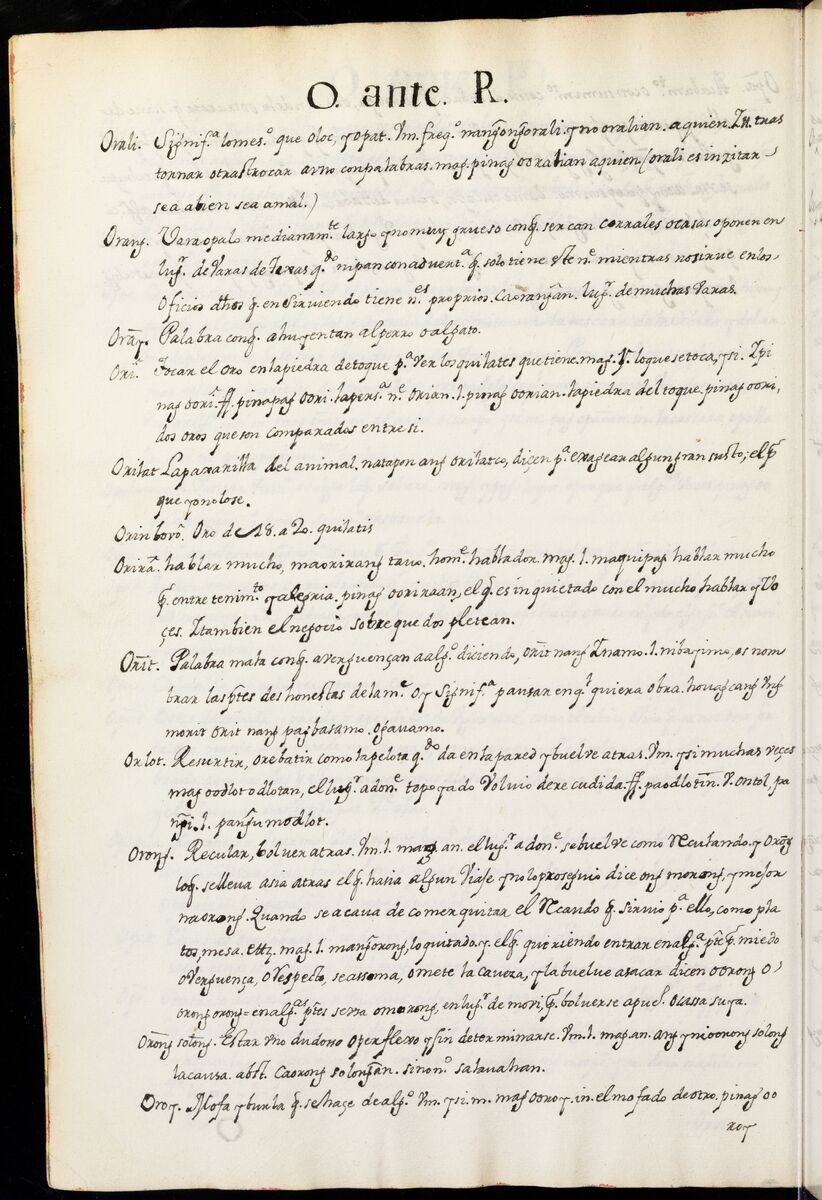 O. ante. R.
Orali. Signif.ª lomes.º que oloc, y opat. Vm. freq.º nangongorali. y no oralian. aquien. Ytt. tras
tornar otrastrocar a vno con palabras. mag. pinag ooralian aquien (orali es inxitar
sea abien sea amal.)
Orang. Vara o palo medianam.te largo y no muy grueso con q. sercan corrales o casas o ponen en
lug.r de Varas de q.do nipan con advert.ª q. solo tiene este n.e mientras no sirue en los
Oficios dhos q. en Sirviendo tiene n.es proprios. Caorangan. lug.r de muchas Varas.
Oray. Palabra con q. ahuyentan al perro o al gato.
Ori. Tocar el oro en la piedra de toque p.ª Ver los quilates que tiene. mag. Y. lo que se toca, y si. Ypi
nag oori. ff. pinapag oori. la pers.ª n.e orian. l. pinag oorian. la piedra del toque. pinag oori,
dos oros que son comparados entre si.
Oritat La paxarilla del animal. natapon ang oritatco, diçen p.ª exagear algun gran susto, el p
que yo no lo se.
Orin boro. Oro de 18. a 20. quilatis
Orira. hablar mucho, maorirang tavo. hom.e hablador. mag. l. maquipag hablar mucho
q. entretenim.to y alegria. pinag ooriraan, el q. es inquietado con el mucho hablar y Vo
çes. Ytambien el negocio sobre que dos pletean.
Orit. Palabra mala con q. averguençan a alg.º diciendo, orit nang Ynamo. l. nibayimo, es nom
brar las p.tes deshonestas de la m.e O y Signif.ª pausar en q.l quiera obra. houag cang Vmg
morit orit nang pagbasamo. Ogavamo.
Orlot. Resurtir, o rebatir como la pelota q.do da en la pared y buelve atras. Vm. y si muchas veçes
mag oodlot odlotan, el lug.r adon.e topo y ado Volvio de recudida. ff. paodlotin. V. ontol, pa
. l. pangumodlot.
Orong. Recular, bolver atras. Vm. l. mag. an. el lug.r a don.e se buelve como Reculando. y orong
loq. se lleva asia atras el q. hasia algun Viaje y no lo prosiguio dice ong morong, y mejor
naorong. Quando se acava de comer quitar el Recaudo q. sirvio p.ª ello, como pla
tos, mesa. ettz. mag. l. mangorong, lo quitado. y el q. queriendo entrar en alg.ª p.te p. miedo
o Verguença, o Respecto, se assoma, o mete la caveza, y la buelve a sacar dicen oorong o
orong orong = en alg.as p.tes serra omorong, en lug.r de mori, p. bolverse a pue.º o cassa suya.
Orong solong. Estar Vno dudosso o perflexo y sin determinarse. Vm. l. mag. an. ang yniorong solong
la causa. abst. Caorong solongan. sinon.º salavahan.
Oroy. Mofa y burla q. se haçe de alg.º Vm. y si. m. mag ooroy. in. el mofado de otro. pinag oo
roy